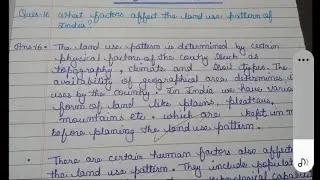 Ques:16 What factors affect the land use pattern of
India?
Ans:16• The land use pattern is determined by certain
physical factors of the county such as
topography, climate and soil types. The
availability of geographical area determines
uses by the country. In India we have various
form of land like plains, plateaus,
mountains etc. which are kept in m
before planing the land use pattern.
• There are certain human factors also affect
the land use pattern. They include populat
technological capabi